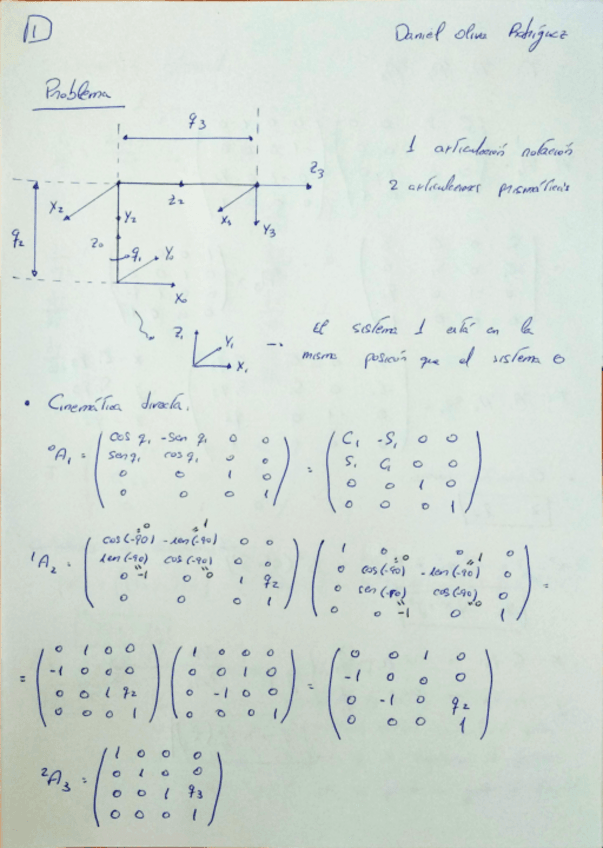 1 Daniel Oliva Rodríguez
Problema
q3
1 articulación rotación
Z3
2 articulaciones prismáticas
X2 Z2 X3
Y2 Y3
q2 Z0 q1 Y0
X0
Z1 Y1 X1 → El sistema 1 está en la
misma posición que el sistema 0
• Cinemática directa.
⁰A₁ = ( cos q₁ -sen q₁ 0 0 ) = ( C₁ -S₁ 0 0 )
( sen q₁ cos q₁ 0 0 ) ( S₁ C₁ 0 0 )
( 0 0 1 0 ) ( 0 0 1 0 )
( 0 0 0 1 ) ( 0 0 0 1 )
=0 =1
¹A₂ = ( cos(-90) -sen(-90) 0 0 ) ( 1 0 0 0 )
( sen(-90) cos(-90) 0 0 ) ( 0 cos(-90) =0 -sen(-90) =1 0 ) =
( 0 =-1 0 =0 1 q2 ) ( 0 sen(-90) cos(-90) 0 )
( 0 0 0 1 ) ( 0 0 =-1 0 =0 1 )
= ( 0 1 0 0 ) ( 1 0 0 0 ) = ( 0 0 1 0 )
( -1 0 0 0 ) ( 0 0 1 0 ) ( -1 0 0 0 )
( 0 0 1 q2 ) ( 0 -1 0 0 ) ( 0 -1 0 q2 )
( 0 0 0 1 ) ( 0 0 0 1 ) ( 0 0 0 1 )
²A₃ = ( 1 0 0 0 )
( 0 1 0 0 )
( 0 0 1 q3 )
( 0 0 0 1 )